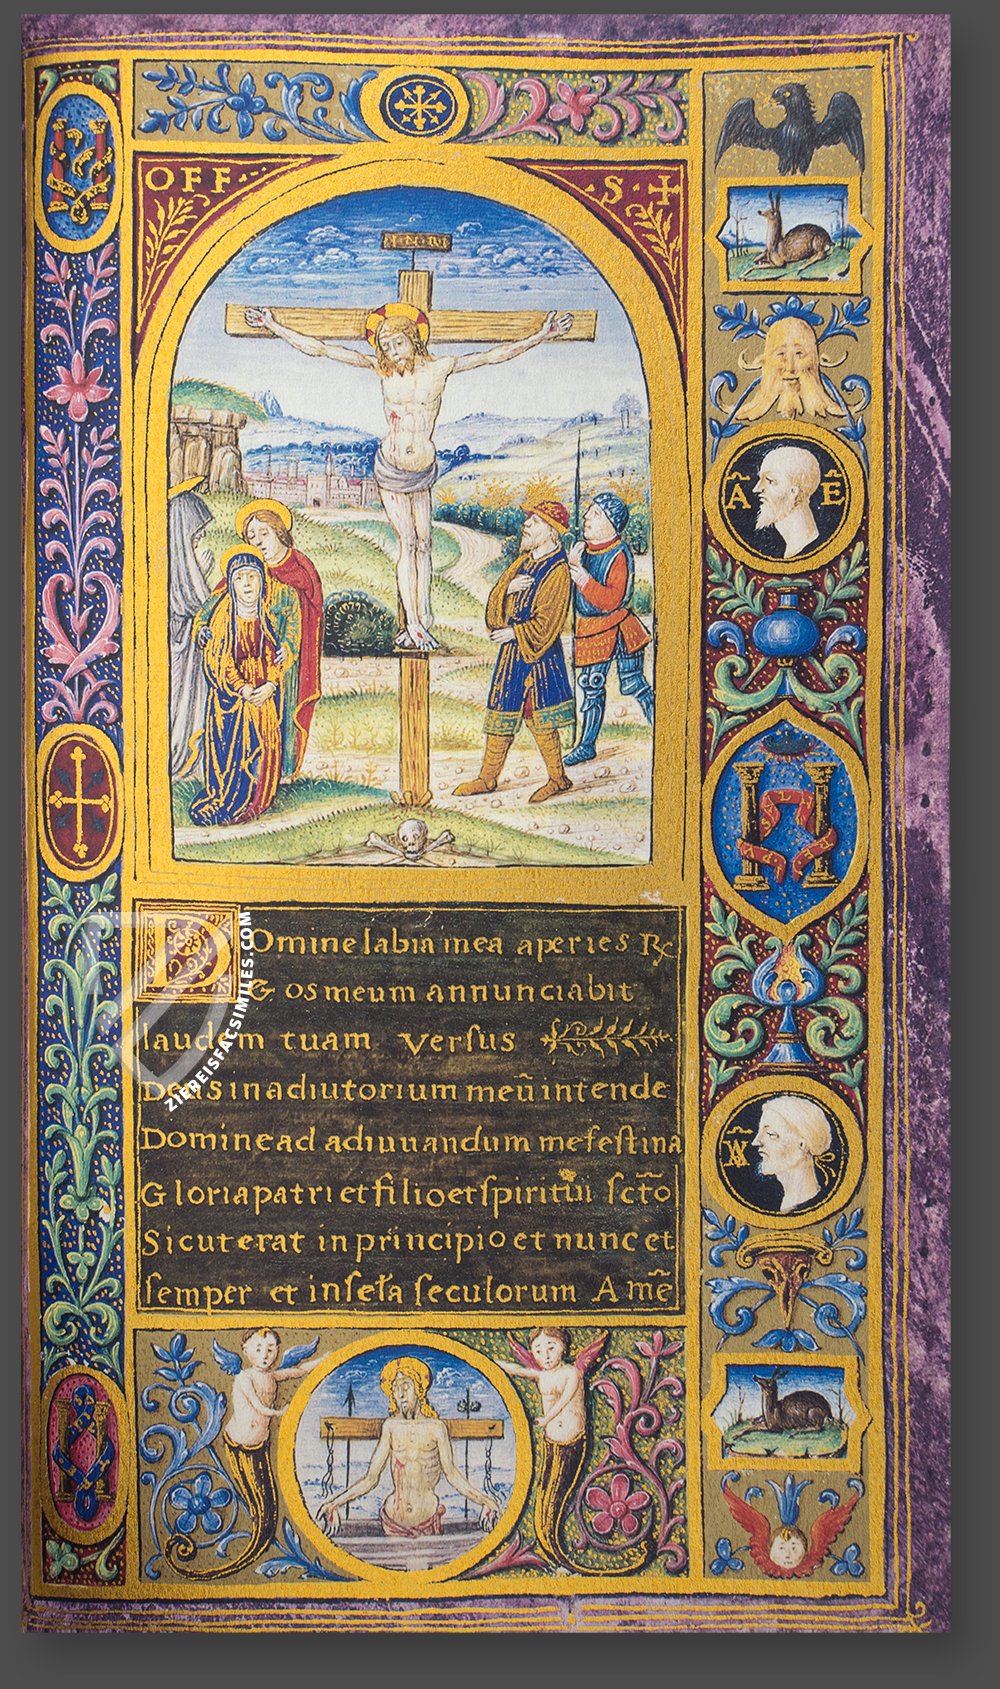 OFF · S ✝
I·N·R·I
A E
Domine labia mea aperies ℞
Et os meum annunciabit
laudem tuam versus
Deus in adiutorium meū intende
Domine ad adiuuandum me festina
Gloria patri et filio et spiritui sc̄to
Sicut erat in principio et nunc et
semper et in secła seculorum Amē
ZIEREISFACSIMILES.COM